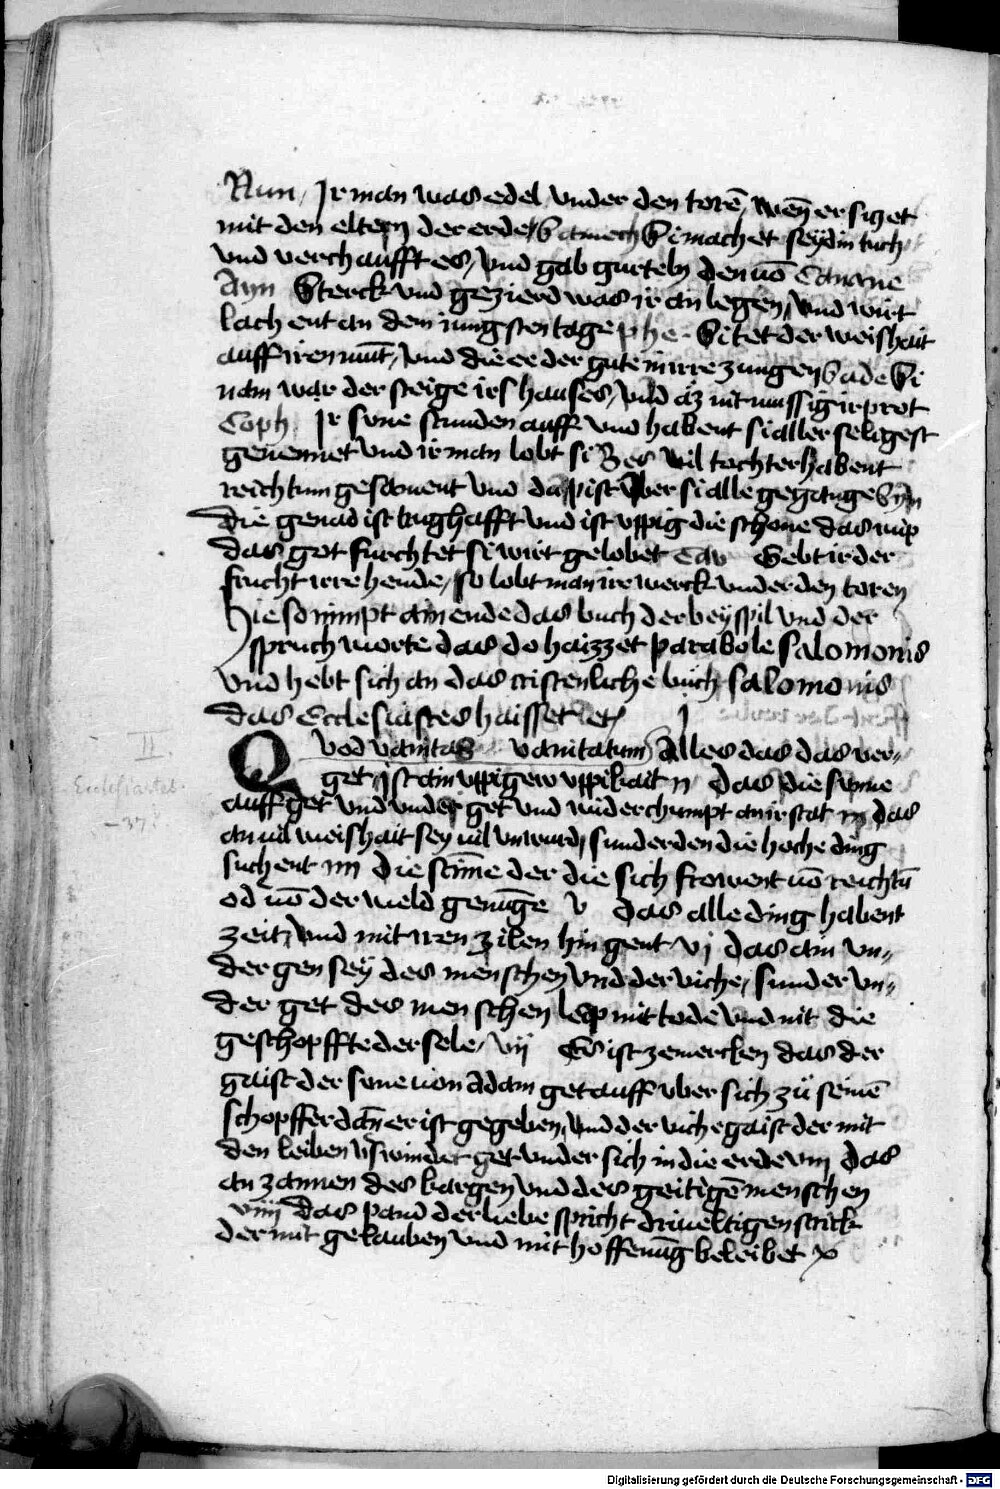 Nun / Ir man was edel vnder den torē, wen er siczet
mit den eltern der erde / Samech Si machet seydin tuch
vnd verchaufft es, vnd gab gurteln den vō Canane
Ayn Sterck vnd gezierd was ir an legen, vnd wirt
lachent an dem iungsten tage phe Si tet der weishait
auff iren mūt, vnd die ee der gute in irre zungen Sade Si
nam war der steige irs hauses, vnd az nit mussig ir prot
Coph Ir sune stunden auff vnd habent si aller seligest
genennet vnd ir man lobt si Res vil tochter habent
reichtum gesament vnd du pist vber si alle gegange Syn
die genad ist trughafft vnd ist vppig die schone das wip
das got furchtet si wirt gelobet Tav Gebt ir der
frucht irre hende, so lobt man ire werck vnder den toren
Hie so nimpt ain ende das buch der beyspil vnd der
spruch worte das do haizzet parabole salomonis
vnd hebt sich an das cristenliche bůch salomonis
das Ecclesiastes haisset et /
Quod vanitas vanitatum Alles das das ver-
get Ist ain vppigew vppikait ij das die sunne
auff get vnd vnder get vnd widerchumpt an ir stat iij das
an vil weishait sey vil vnwird, sunder den die hoche ding
suchent iiij die stīme der die sich frowent vō reichtū
od vō der weld genūge v das alle ding habent
zeit, vnd mit iren zilen hin gent vj das ain vn-
dergen seÿ des menschen vnd der viche, sunder vn-
der get des menschen leip mit tode vnd nit die
geschopffte der sele / vij Es ist zemercken das der
gaist der sune von Adam get auff vber sich zů seinē
schopffer dan er ist gegeben, vnd der viche gaist der mit
den leiben vswindet get vnder sich in die erde viij das
an zannen des kargen vnd des geitigē menschen
viiij das pand der liebe spricht driueltigen strick
der mit gelauben vnd mit hoffenūg beleibet x
II.
Ecclesiastes.
Digitalisierung gefördert durch die Deutsche Forschungsgemeinschaft - DFG